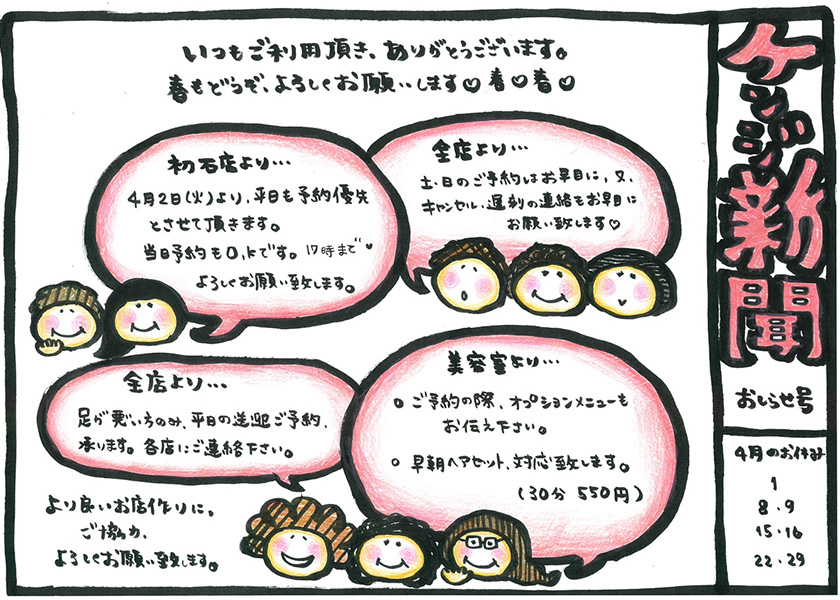 ケンジ新聞
おしらせ号
4月のお休み
1
8・9
15・16
22・29
いつもご利用頂き、ありがとうございます。
春もどうぞ、よろしくお願いします♡春♡春♡
初石店より…
4月2日(火)より、平日も予約優先
とさせて頂きます。
当日予約もO.kです。17時まで♥
よろしくお願い致します。
全店より…
土、日のご予約はお早目に，又、
キャンセル、遅刻の連絡もお早目に
お願い致します♡
全店より…
足が悪い方のみ、平日の送迎ご予約、
承ります。各店にご連絡下さい。
美容室より…
○ ご予約の際、オプションメニューも
お伝え下さい。
○ 早朝ヘアセット、対応致します。
(30分 550円)
より良いお店作りに。
ご協力、
よろしくお願い致します。